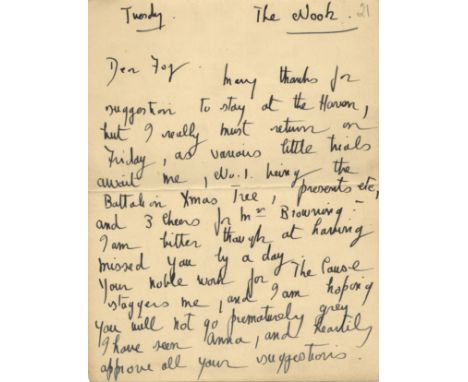 Tuesday. The Nook. 21
Dear Foy.
Many thanks for
suggestion to stay at the Haven,
but I really must return on
Friday, as various little trials
await me, No. 1. being the
Battalion Xmas Tree, presents etc,
and 3 cheers for Mrs Browning!
I am bitter though at having
missed you by a day.
Your noble work for The Cause
staggers me, and I am hoping
you will not go prematurely grey
I have seen Anna, and heartily
approve all your suggestions.